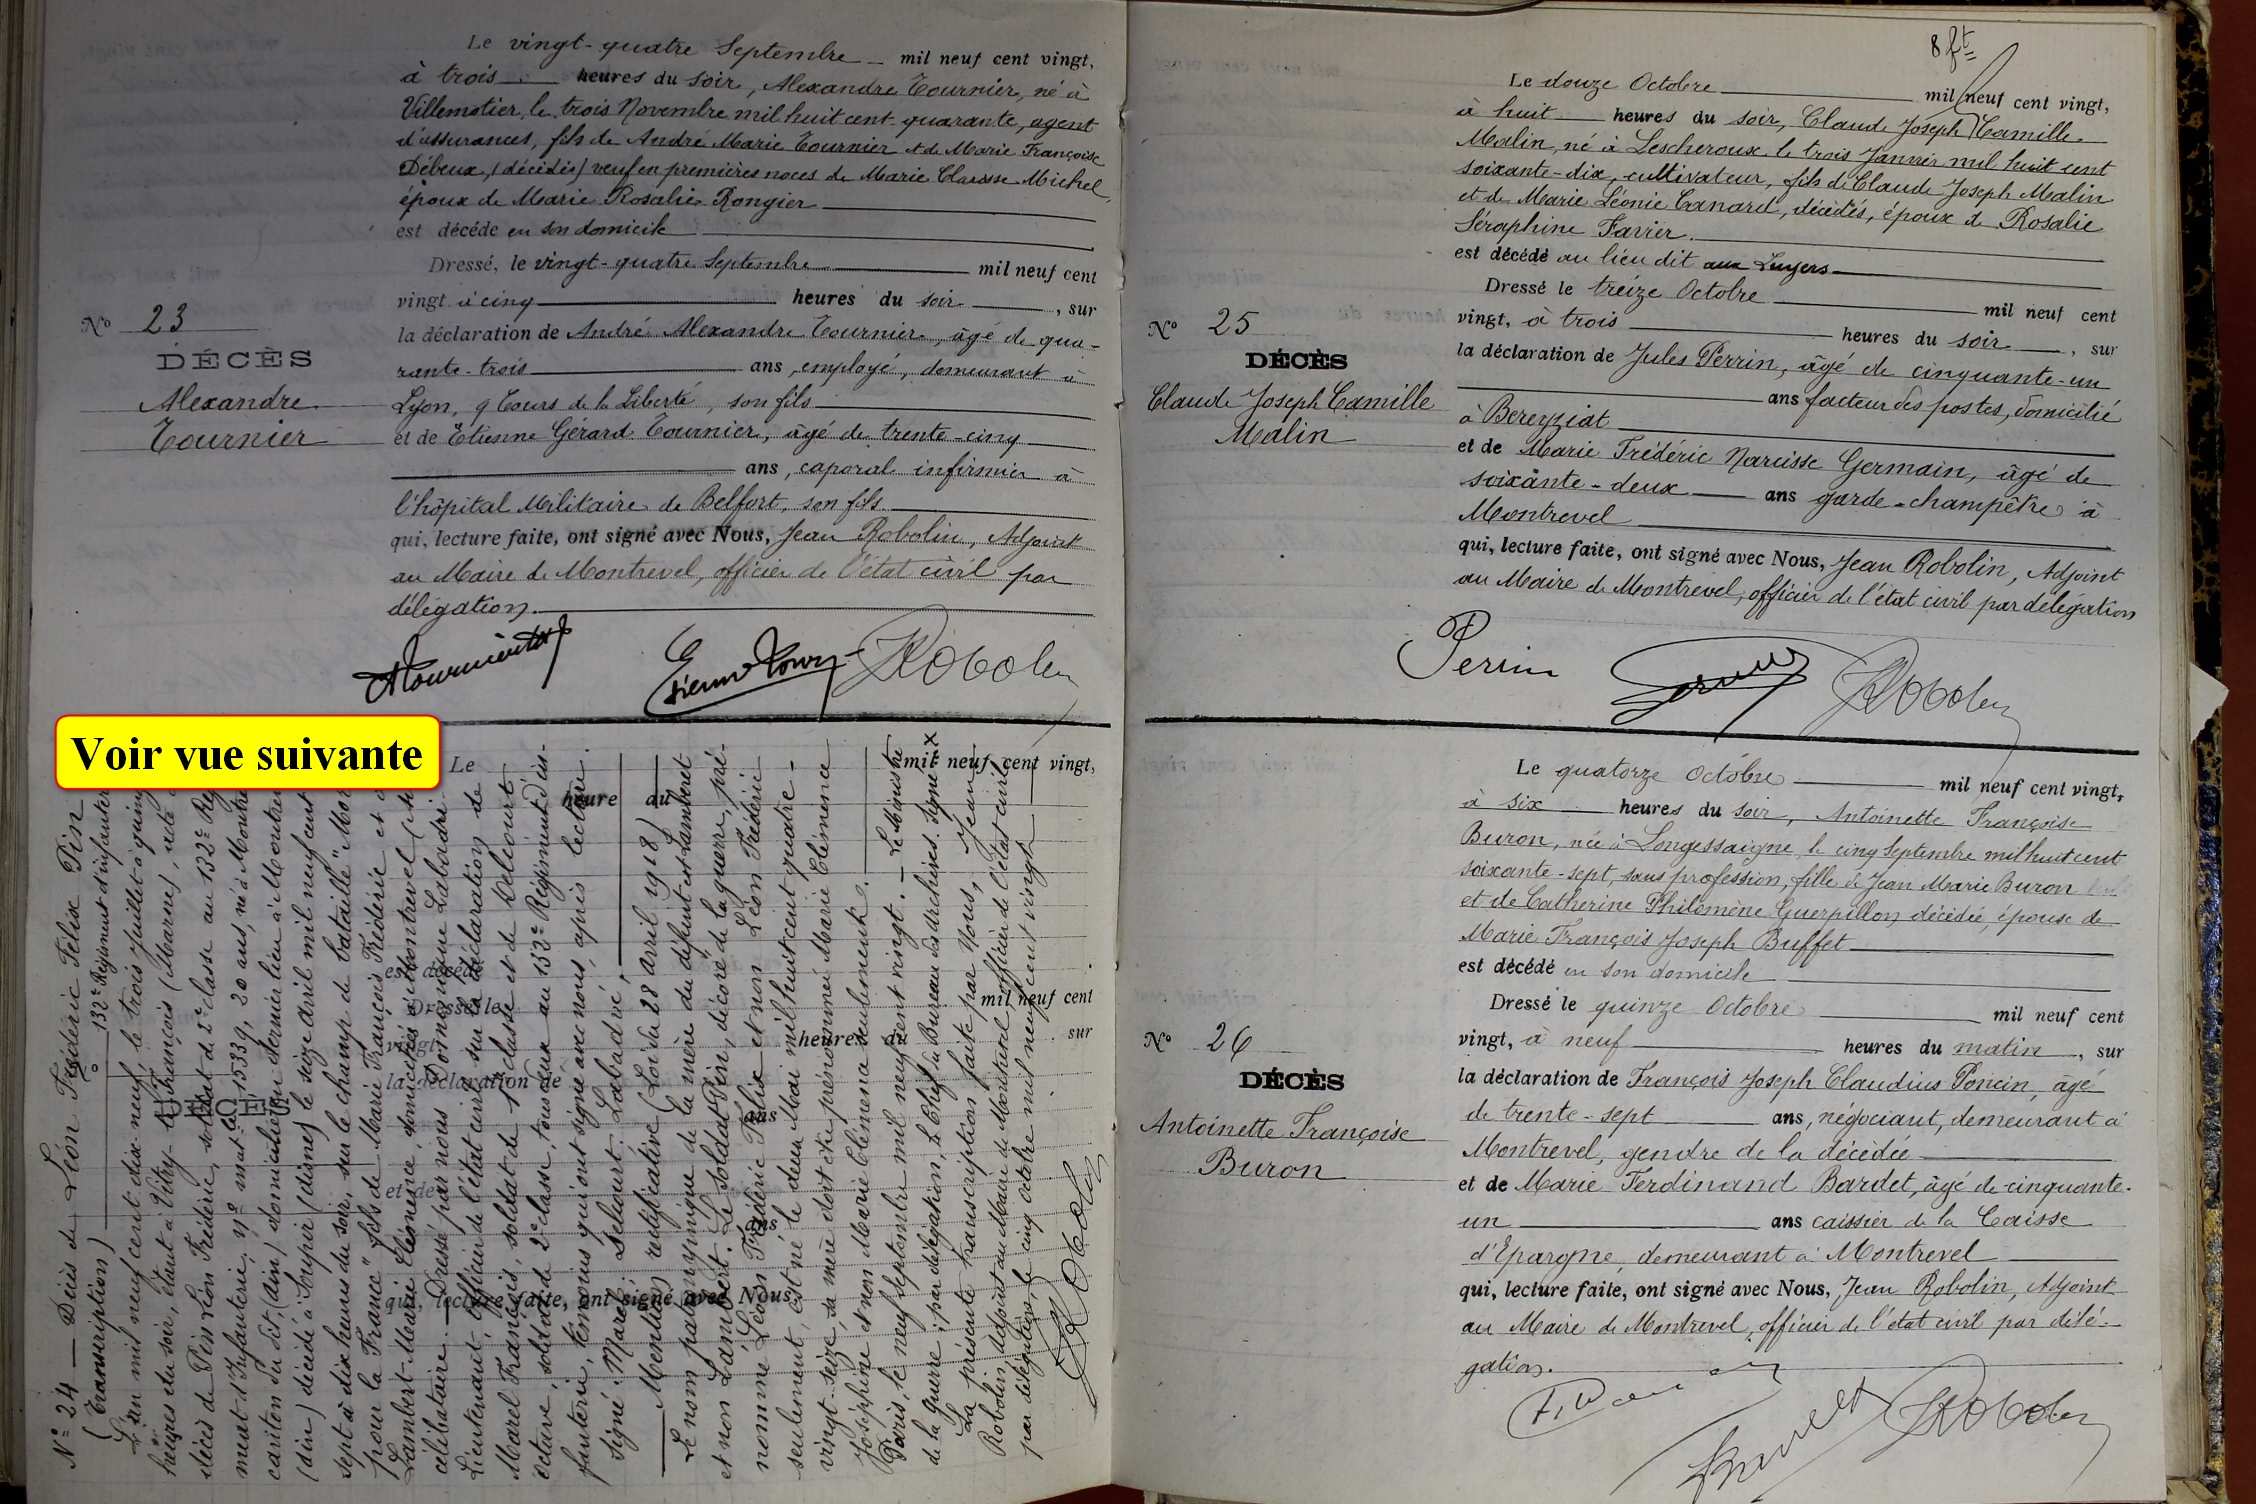 Le vingt-quatre Septembre mil neuf cent vingt,
à trois heures du soir, Alexandre Tournier, né à
Villemotier, le trois Novembre mil huit cent quarante, agent
d'assurances, fils de André Marie Tournier et de Marie Françoise
Débeux, (décédés) veuf en premières noces de Marie Clarisse Michel,
époux de Marie Rosalie Rongier
est décédé en son domicile
Dressé, le vingt-quatre Septembre mil neuf cent
vingt à cinq heures du soir, sur
la déclaration de André Alexandre Tournier, âgé de qua-
rante-trois ans, employé, demeurant à
Lyon, 9 Cours de la Liberté, son fils
et de Etienne Gérard Tournier, âgé de trente-cinq
ans, caporal infirmier à
l'hôpital Militaire de Belfort, son fils
qui, lecture faite, ont signé avec Nous, Jean Robolin, Adjoint
au Maire de Montrevel, officier de l'état civil par
délégation.
Robolin
No 23
DÉCÈS
Alexandre
Tournier
Voir vue suivante
No 24 — Décès de Léon Frédéric Félix Pin
(Transcription) 132e Régiment d'infanterie
L'an mil neuf cent dix-neuf, le trois Juillet à quinze
heures du soir, étant à Vitry-le-François (Marne), acte
décès de Pin Léon Frédéric, soldat de 2e classe au 132e Rég
ment d'Infanterie, No mat. 15339, 20 ans, né à Montre
cariton du dit (Ain) domicilié en dernier lieu à Montrev
(Ain) décédé à Soupir (Aisne) le seize Avril mil neuf cent
sept à dix heures du soir, sur le champ de bataille "Mor
pour la France" fils de Marie François Frédéric et
Lambert Marie Eléonore, domiciliés à Montrevel
célibataire. — Dressé par nous Dominique Labadri
Lieutenant, officier de l'état civil, sur la déclaration de
Marel François, soldat de 1e classe et de Delcourt
Octave, soldat de 2e classe, tous deux au 132e Régiment d'in-
fanterie, témoins qui ont signé avec nous, après lecture.
Signé: Marel, Delcourt. Labadrié,
Mention rectificative (Loi du 28 avril 1918)
Le nom patronymique de la mère du défunt est Lambert
et non Lámbert. Le Soldat Pin, décoré de la guerre, pré-
nommé Léon Frédéric Félix et non Léon Frédéric
seulement, est né le deux Mai mil huit cent quatre-
vingt-seize, sa mère doit être prénommée Marie Clémence
Joséphine et non Marie Clémence seulement.
Paris, le neuf septembre mil neuf cent vingt. — Le Ministre
de la guerre, par délégation, le Chef du Bureau des Archives. Signé X
La présente transcription faite par Nous, Jean
Robolin, Adjoint au Maire de Montrevel, officier de l'état civil
par délégation, le cinq octobre mil neuf cent vingt
Robolin
Le mil neuf cent vingt,
heure du
est décédé
Dressé le mil neuf cent
vingt heures du sur
la déclaration de
ans
et de
ans
qui, lecture faite, ont signé avec Nous,
No
DÉCÈS
8 ft
Le douze Octobre mil neuf cent vingt,
à huit heures du soir, Claude Joseph Camille
Malin, né à Lescheroux le trois Janvier mil huit cent
soixante-dix, cultivateur, fils de Claude Joseph Malin
et de Marie Léonie Canard, décédés, époux de Rosalie
Séraphine Favier.
est décédé au lieu dit aux Luyers
Dressé le treize Octobre mil neuf cent
vingt, à trois heures du soir, sur
la déclaration de Jules Perrin, âgé de cinquante-un
ans facteur des postes, domicilié
à Bereyziat
et de Marie Frédéric Narcisse Germain, âgé de
soixante-deux ans garde-champêtre à
Montrevel
qui, lecture faite, ont signé avec Nous, Jean Robolin, Adjoint
au Maire de Montrevel, officier de l'état civil par délégation
Perrin Robolin
No 25
DÉCÈS
Claude Joseph Camille
Malin
Le quatorze Octobre mil neuf cent vingt,
à six heures du soir, Antoinette Françoise
Buron, née à Longessaigne, le cinq Septembre mil huit cent
soixante-sept, sans profession, fille de Jean Marie Buron
et de Catherine Philomène Guerpillon, décédée, épouse de
Marie François Joseph Buffet
est décédé en son domicile
Dressé le quinze Octobre mil neuf cent
vingt, à neuf heures du matin, sur
la déclaration de François Joseph Claudius Poncin, âgé
de trente-sept ans, négociant, demeurant à
Montrevel, gendre de la décédée
et de Marie Ferdinand Bardet, âgé de cinquante-
un ans caissier de la Caisse
d'Epargne, demeurant à Montrevel
qui, lecture faite, ont signé avec Nous, Jean Robolin, Adjoint
au Maire de Montrevel, officier de l'état civil par délé-
gation.
Robolin
No 26
DÉCÈS
Antoinette Françoise
Buron